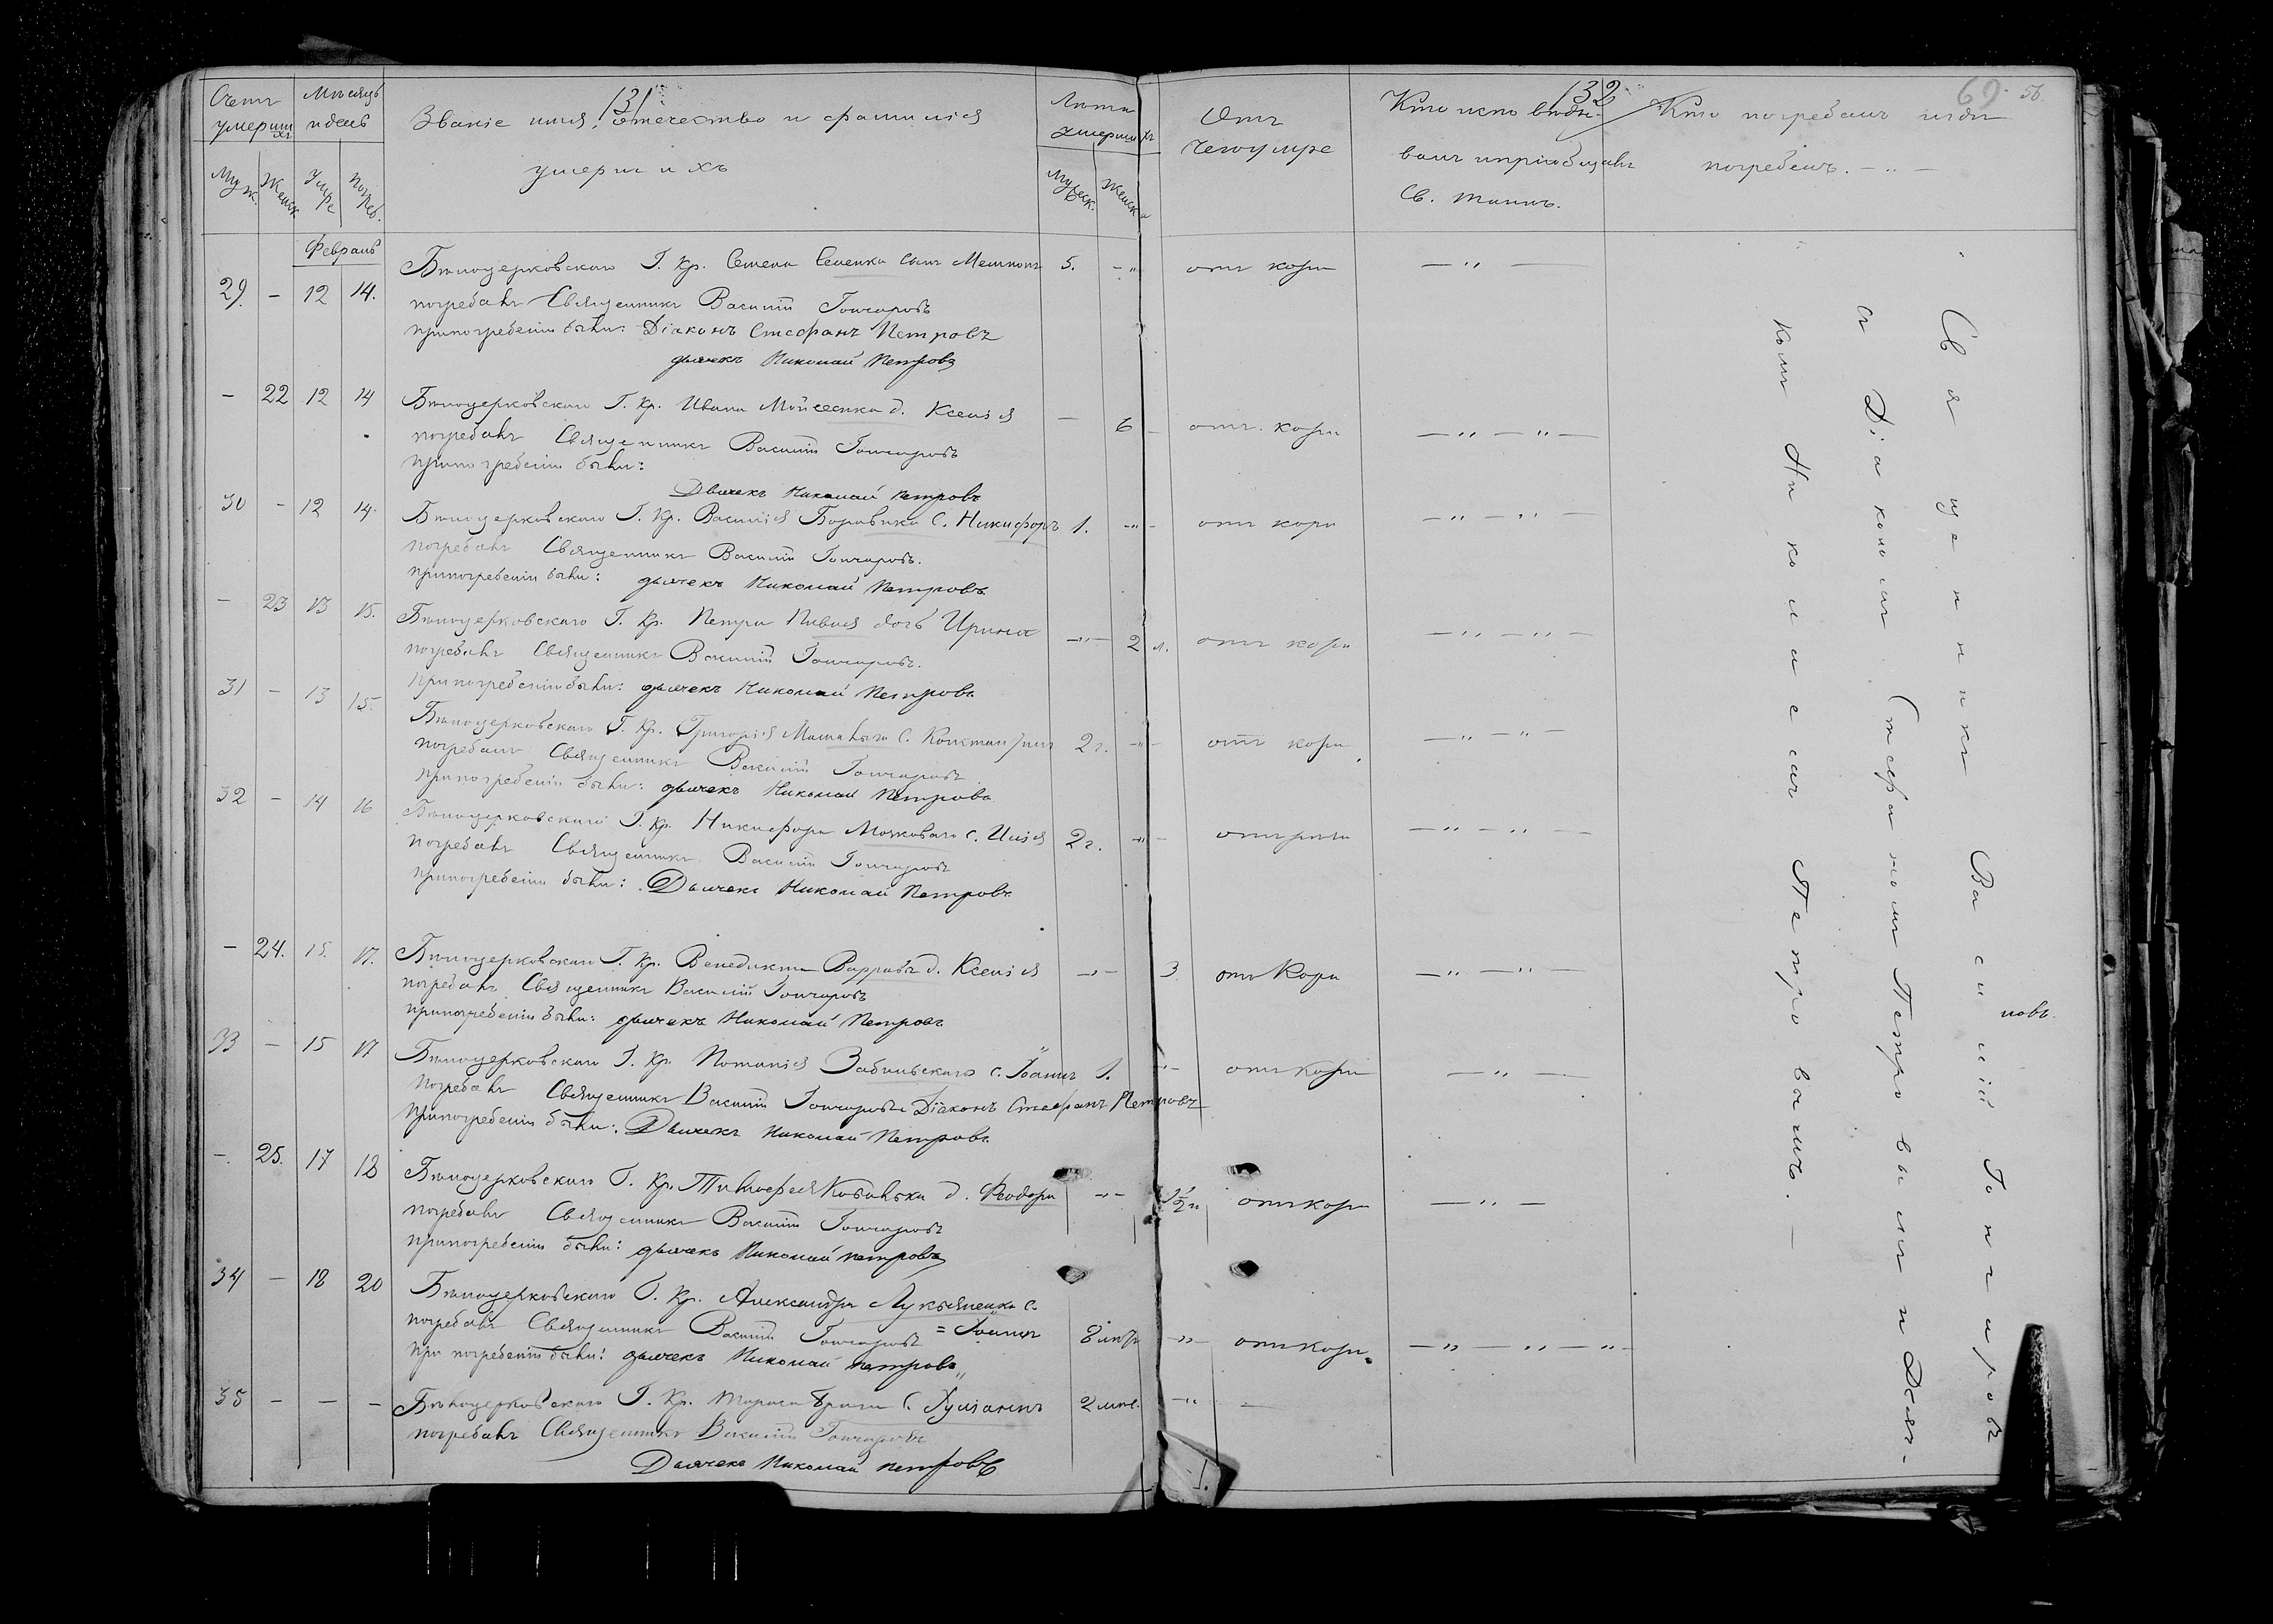 131
132
69. 56.
Счетъ умершихъ
Мѣсяцъ и день
Званіе имя, отечество и фамилія умершихъ
Лѣта умершихъ
Отъ чего умре
Кто исповѣдывалъ и пріобщалъ Св. таинъ.
Кто погребалъ и гдѣ погребенъ. — " —
Муж. Женск Умре Погреб.
Мужеск. Женска
Февраль
29. – 12 14. Бѣлоцерковскаго Г. Кр. Семена Сененка сынъ 5. – " отъ кори — " —
погребалъ Священникъ Василій Гончаровъ
при погребеніи были: Діаконъ Стефанъ Петровъ
дьячекъ Николай Петровъ
– 22 12 14 Бѣлоцерковскаго Г. Кр. Ивана Мойсеенка д. Ксенія — 6 – отъ кори — " — " —
погребалъ Священникъ Василій Гончаровъ
при погребеніи были:
Дьячекъ Николай Петровъ
30 – 12 14 Бѣлоцерковскаго Г. Кр. Василія Боровика с. Никифоръ 1. – " – отъ кори — " — " —
погребалъ Священникъ Василій Гончаровъ.
при погребеніи были: дьячекъ Николай Петровъ
– 23 13 15. Бѣлоцерковскаго Г. Кр. Петра Пивня дочь Ирина — " — 2 л. отъ кори — " — " —
погребалъ Священникъ Василій Гончаровъ.
при погребеніи были: дьячекъ Николай Петровъ
31 – 13 15. Бѣлоцерковскаго Г. Кр. Григорія с. Константинъ 2 г. – " – отъ кори — " — " —
погребалъ Священникъ Василій Гончаровъ
при погребеніи были: дьячекъ Николай Петровъ
32 – 14 16 Бѣлоцерковскаго Г. Кр. Никифора с. Илія 2 г. – " – отъ — " — " —
погребалъ Священникъ Василій Гончаровъ
при погребеніи были: Дьячекъ Николай Петровъ
– 24. 15. 17. Бѣлоцерковскаго Г. Кр. Венедикта д. Ксенія — " — 3 отъ Кори — " — " —
погребалъ Священникъ Василій Гончаровъ
при погребеніи были: дьячекъ Николай Петровъ
33 – 15 17 Бѣлоцерковскаго Г. Кр. Потапія Забѣльскаго с. Іоаннъ 1. – " – отъ кори — " —
погребалъ Священникъ Василій Гончаровъ Діаконъ Стефанъ Петровъ
при погребеніи были: Дьячекъ Николай Петровъ
–. 25. 17 18 Бѣлоцерковскаго Г. Кр. Тимофея д. Феодора — " — 1½ отъ кори — " —
погребалъ Священникъ Василій Гончаровъ
при погребеніи были: дьячекъ Николай Петровъ
34 – 18 20 Бѣлоцерковскаго Г. Кр. Александра Лукьяненка с.
погребалъ Священникъ Василій Гончаровъ = Іоаннъ 8 — " — отъ кори. — " — " — " —
при погребеніи были: дьячекъ Николай Петровъ
35 – – – Бѣлоцерковскаго Г. Кр. Тараса с. Іуліанъ 2 — " —
погребалъ Священникъ Василій Гончаровъ
Дьячекъ Николай Петровъ
Священникъ Василій Гончаровъ
съ Діакономъ Стефаномъ Петровымъ и Дьяч-
комъ Николаемъ Петровымъ. —